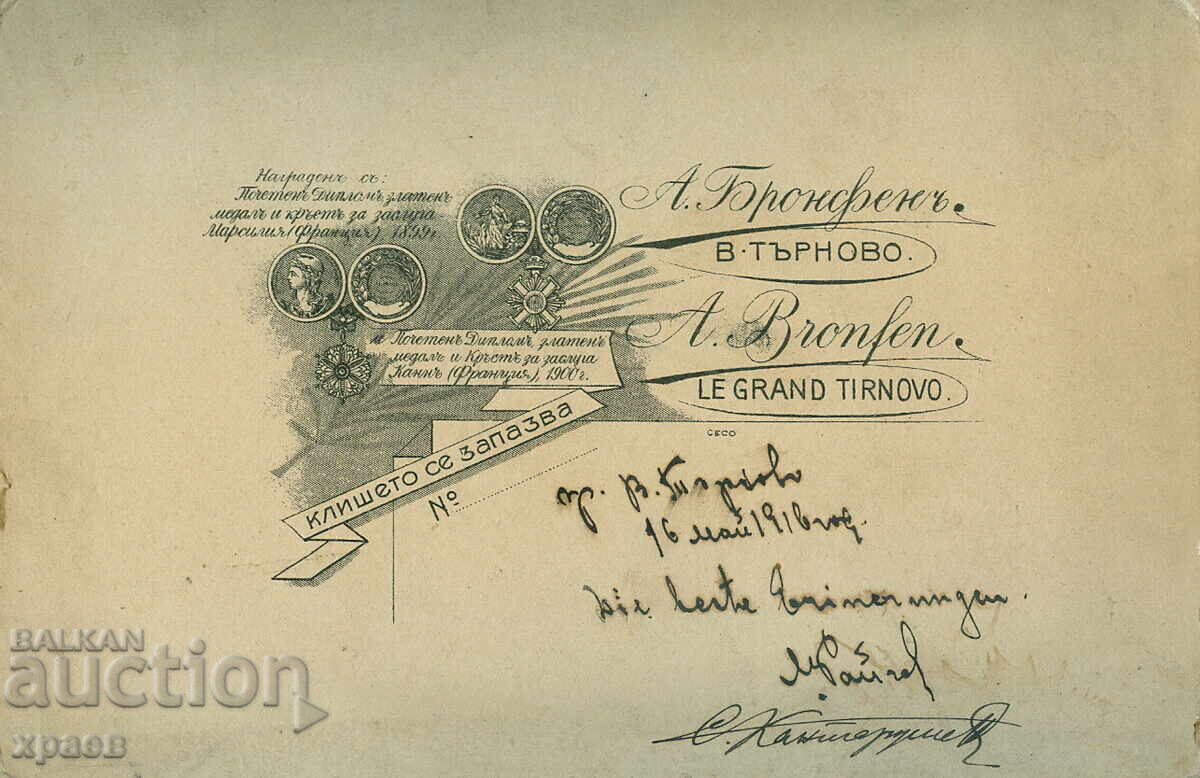 Награденъ съ:
Почетенъ Дипломъ, златенъ
медалъ и кръстъ за заслуга
Марсилия (Франция) 1899 г.
и Почетенъ Дипломъ, златенъ
медалъ и Кръстъ за заслуга
Каннъ (Франция), 1900 г.
А. Бронфенъ.
В. ТЪРНОВО.
A. Bronfen.
LE GRAND TIRNOVO.
КЛИШЕТО СЕ ЗАПАЗВА
№
гр. В. Търново
16 май 1916 год.
Die beste Erinerungen.
М Райчев
BALKAN
auction
храев